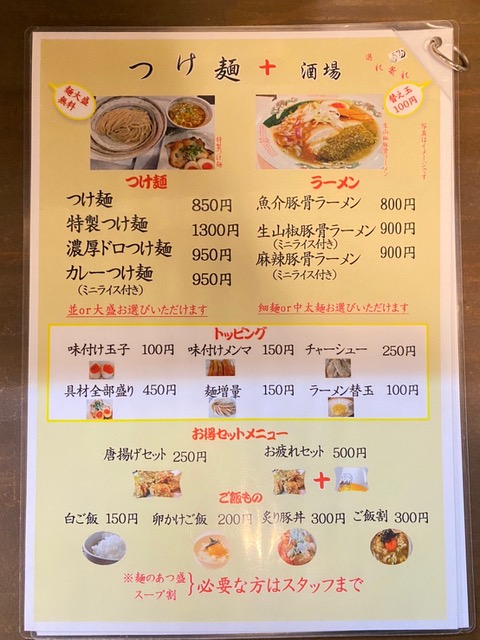 つけ麺+酒場
麺大盛
無料
替え玉
100円
写真はイメージです
特製つけ麺
つけ麺
つけ麺 850円
特製つけ麺 1300円
濃厚ドロつけ麺 950円
カレーつけ麺 950円
(ミニライス付き)
並or大盛お選びいただけます
ラーメン
魚介豚骨ラーメン 800円
生山椒豚骨ラーメン 900円
(ミニライス付き)
麻辣豚骨ラーメン 900円
(ミニライス付き)
細麺or中太麺お選びいただけます
トッピング
味付け玉子 100円 味付けメンマ 150円 チャーシュー 250円
具材全部盛り 450円 麺増量 150円 ラーメン替玉 100円
お得セットメニュー
唐揚げセット 250円 お疲れセット 500円
+
ご飯もの
白ご飯 150円 卵かけご飯 200円 炙り豚丼 300円 ご飯割 300円
※麺のあつ盛
スープ割
}必要な方はスタッフまで